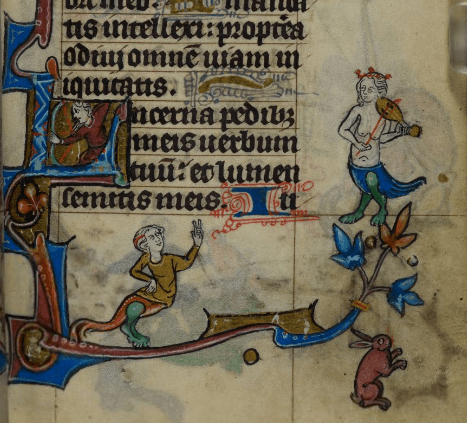 ori meo: A manda
tis intellexi: propt̄ea
odiui omnē uiam in
iquitatis.
Lucerna pedibꝫ
meis uerbum
tuū: et lumen
semitis meis. Iu